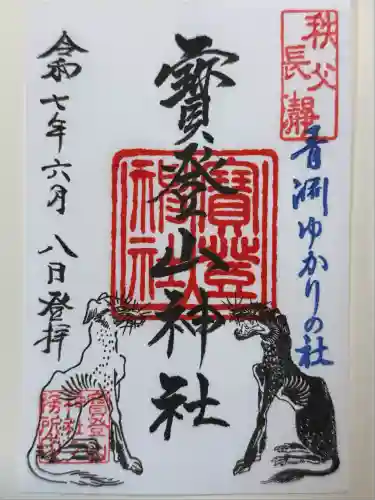 秩父
長瀞
青淵ゆかりの社
寶登山神社
寶登山
神社
令和七年六月八日登拝
寶登山
神社社
務所印